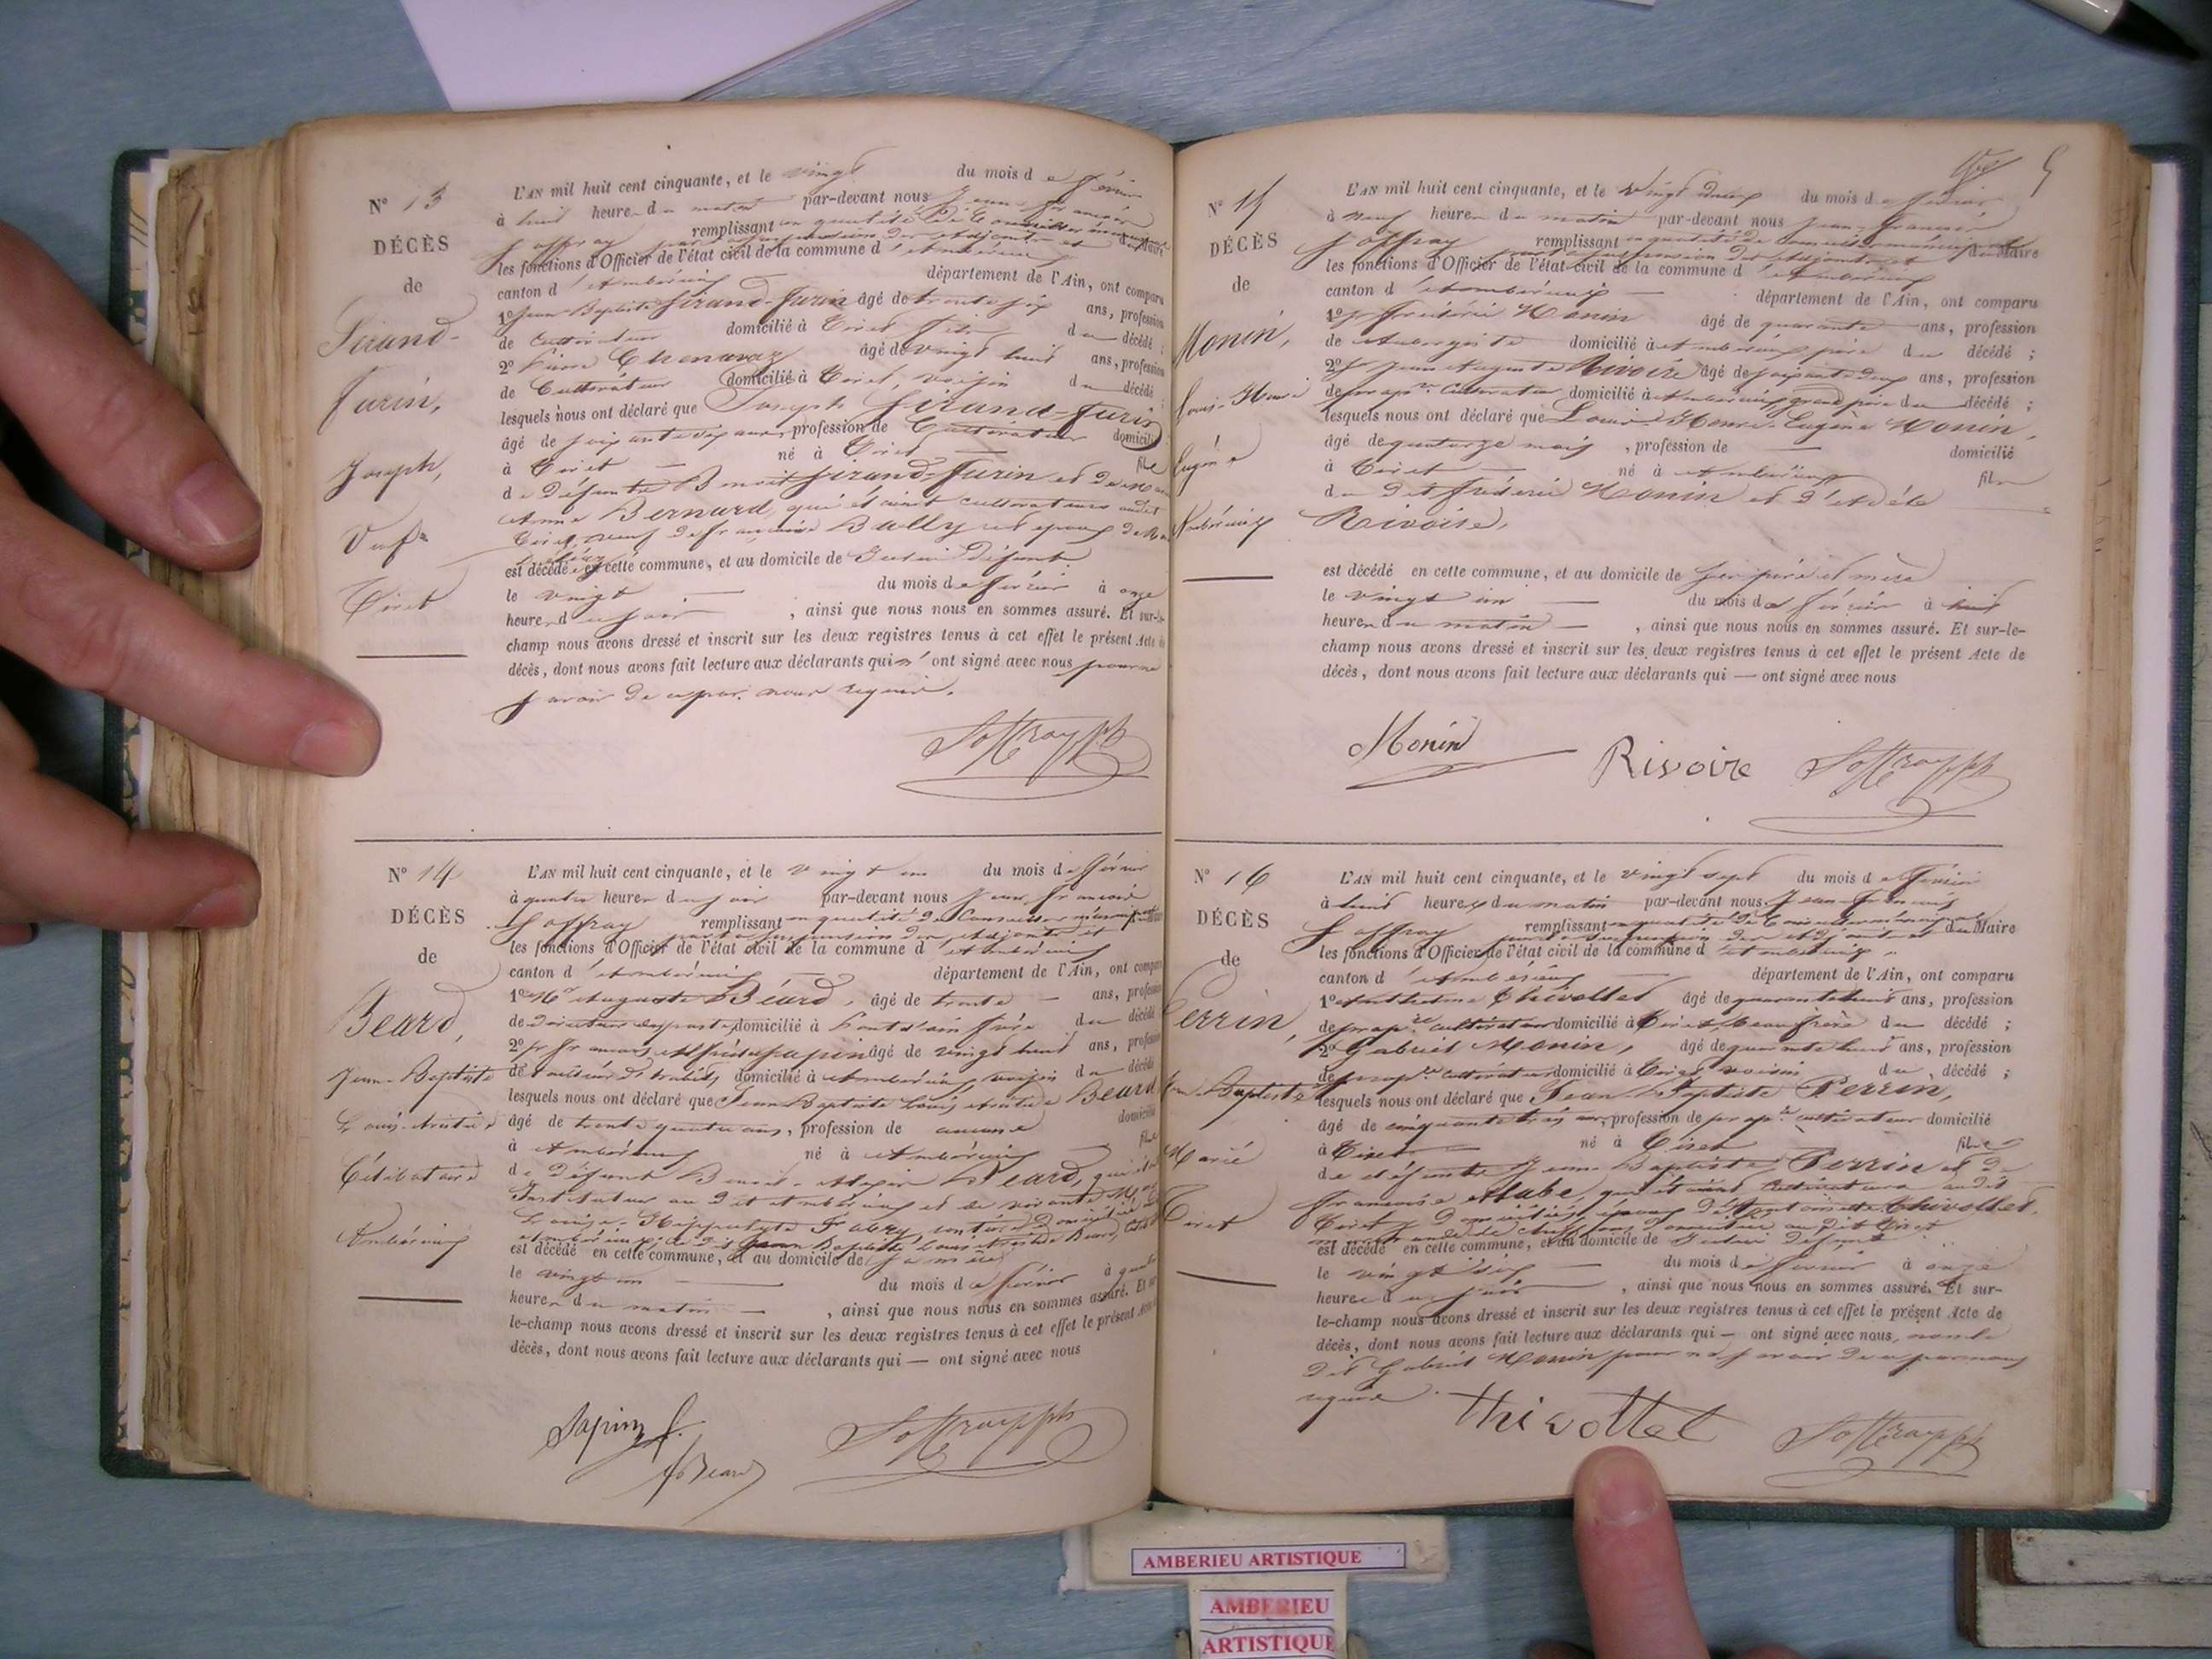 N° 13
DÉCÈS
de
Sirand-
Furin,
Joseph,
Veuf
Tiret
L'AN mil huit cent cinquante, et le vingt du mois de février
à huit heures du matin par-devant nous Jean-François
Soffray remplissant en qualité de Conseiller municipal par la suspension des adjoints et du Maire
les fonctions d'Officier de l'état civil de la commune d'Ambérieux
canton d'Ambérieux département de l'Ain, ont comparu
1° Jean Baptiste Sirand-Furin âgé de trente six ans, profession
de cultivateur domicilié à Tiret fils du décédé ;
2° Pierre Chenavaz âgé de vingt huit ans, profession
de Cultivateur domicilié à Tiret, voisin du décédé ;
lesquels nous ont déclaré que Joseph Sirand-Furin
âgé de soixante six ans, profession de Cultivateur domicilié
à Tiret né à Tiret fils
de défunts Benoit Sirand-Furin et de
Anne Bernard, qui étaient cultivateurs audit
Tiret, veuf de françoise Bully
est décédé en cette commune, et au domicile de lui défunt
le vingt du mois de février à onze
heures du soir , ainsi que nous nous en sommes assuré. Et sur-le-
champ nous avons dressé et inscrit sur les deux registres tenus à cet effet le présent Acte de
décès, dont nous avons fait lecture aux déclarants qui n'ont signé avec nous pour ne
savoir de ce par nous requis.
Soffray
N° 14
DÉCÈS
de
Béard,
Jean-Baptiste
Louis-Aristide
Célibataire
Ambérieux
L'AN mil huit cent cinquante, et le vingt un du mois de février
à quatre heures du soir par-devant nous Jean François
Soffray remplissant en qualité de Conseiller municipal par la suspension des adjoints et du Maire
les fonctions d'Officier de l'état civil de la commune d'Ambérieux
canton d'Ambérieux département de l'Ain, ont comparu
1° Mr Auguste Béard, âgé de trente ans, profession
de Directeur des postes, domicilié à Pont d'ain frère du décédé
2° Sr françois Alfred Sapin âgé de vingt huit ans, profession
de domicilié à Ambérieux voisin du décédé
lesquels nous ont déclaré que Jean Baptiste Louis Aristide Béard
âgé de trente quatre ans, profession de aucune domicilié
à Ambérieux né à Ambérieux fils
de défunt Benoit Béard, qui était
Instituteur au dit Ambérieux et de vivante
Louise Hippolyte Fabry, rentière domiciliée
est décédé en cette commune, et au domicile de sa mère
le vingt un du mois de février à quatre
heures du matin , ainsi que nous nous en sommes assuré. Et sur-
le-champ nous avons dressé et inscrit sur les deux registres tenus à cet effet le présent Acte
décès, dont nous avons fait lecture aux déclarants qui — ont signé avec nous
Sapin f.
Béard
Soffray
5
N° 15
DÉCÈS
de
Monin,
Louis-Henri
Eugène
Ambérieux
L'AN mil huit cent cinquante, et le vingt deux du mois de février
à neuf heures du matin par-devant nous Jean-François
Soffray remplissant en qualité de conseiller municipal par la suspension des adjoints et du Maire
les fonctions d'Officier de l'état civil de la commune d'Ambérieux
canton d'Ambérieux département de l'Ain, ont comparu
1° Sr frédéric Monin âgé de quarante ans, profession
de Aubergiste domicilié à Ambérieux père du décédé ;
2° Sr Jean Auguste Rivoire âgé de soixante deux ans, profession
de prop.re Cultivateur domicilié à Ambérieux grand père du décédé ;
lesquels nous ont déclaré que Louis Henri Eugène Monin,
âgé de quatorze mois , profession de — domicilié
à Tiret né à Ambérieux fils
du dit frédéric Monin et d'Adèle
Rivoire,
est décédé en cette commune, et au domicile de ses père et mère
le vingt un du mois de février à huit
heures du matin , ainsi que nous nous en sommes assuré. Et sur-le-
champ nous avons dressé et inscrit sur les deux registres tenus à cet effet le présent Acte de
décès, dont nous avons fait lecture aux déclarants qui — ont signé avec nous
Monin Rivoire Soffray
N° 16
DÉCÈS
de
Perrin,
Jean-Baptiste
Marié
Tiret
L'AN mil huit cent cinquante, et le vingt sept du mois de février
à huit heures du matin par-devant nous Jean-François
Soffray remplissant en qualité de Conseiller municipal par la suspension des adjoints et du Maire
les fonctions d'Officier de l'état civil de la commune d'Ambérieux
canton d'Ambérieux département de l'Ain, ont comparu
1° Anthelme Thivollet âgé de quarante huit ans, profession
de prop.re cultivateur domicilié à Tiret, beau frère du décédé ;
2° Gabriel Monin, âgé de quarante huit ans, profession
de prop.re cultivateur domicilié à Tiret voisin du décédé ;
lesquels nous ont déclaré que Jean Baptiste Perrin,
âgé de cinquante trois ans, profession de prop.re cultivateur domicilié
à Tiret né à Tiret fils
de défunts Jean-Baptiste Perrin et de
françoise qui étaient Cultivateurs audit
Tiret Thivollet,
est décédé en cette commune, et au domicile de lui défunt
le vingt six du mois de février à onze
heures du soir , ainsi que nous nous en sommes assuré. Et sur-
le-champ nous avons dressé et inscrit sur les deux registres tenus à cet effet le présent Acte de
décès, dont nous avons fait lecture aux déclarants qui — ont signé avec nous, non le
dit Gabriel Monin pour ne savoir de ce par nous
requis.
Thivollet Soffray
AMBERIEU ARTISTIQUE
AMBERIEU
ARTISTIQUE